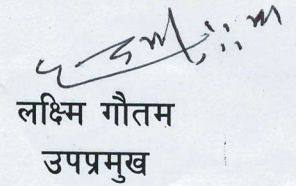 लक्ष्मि गौतम
उपप्रमुख